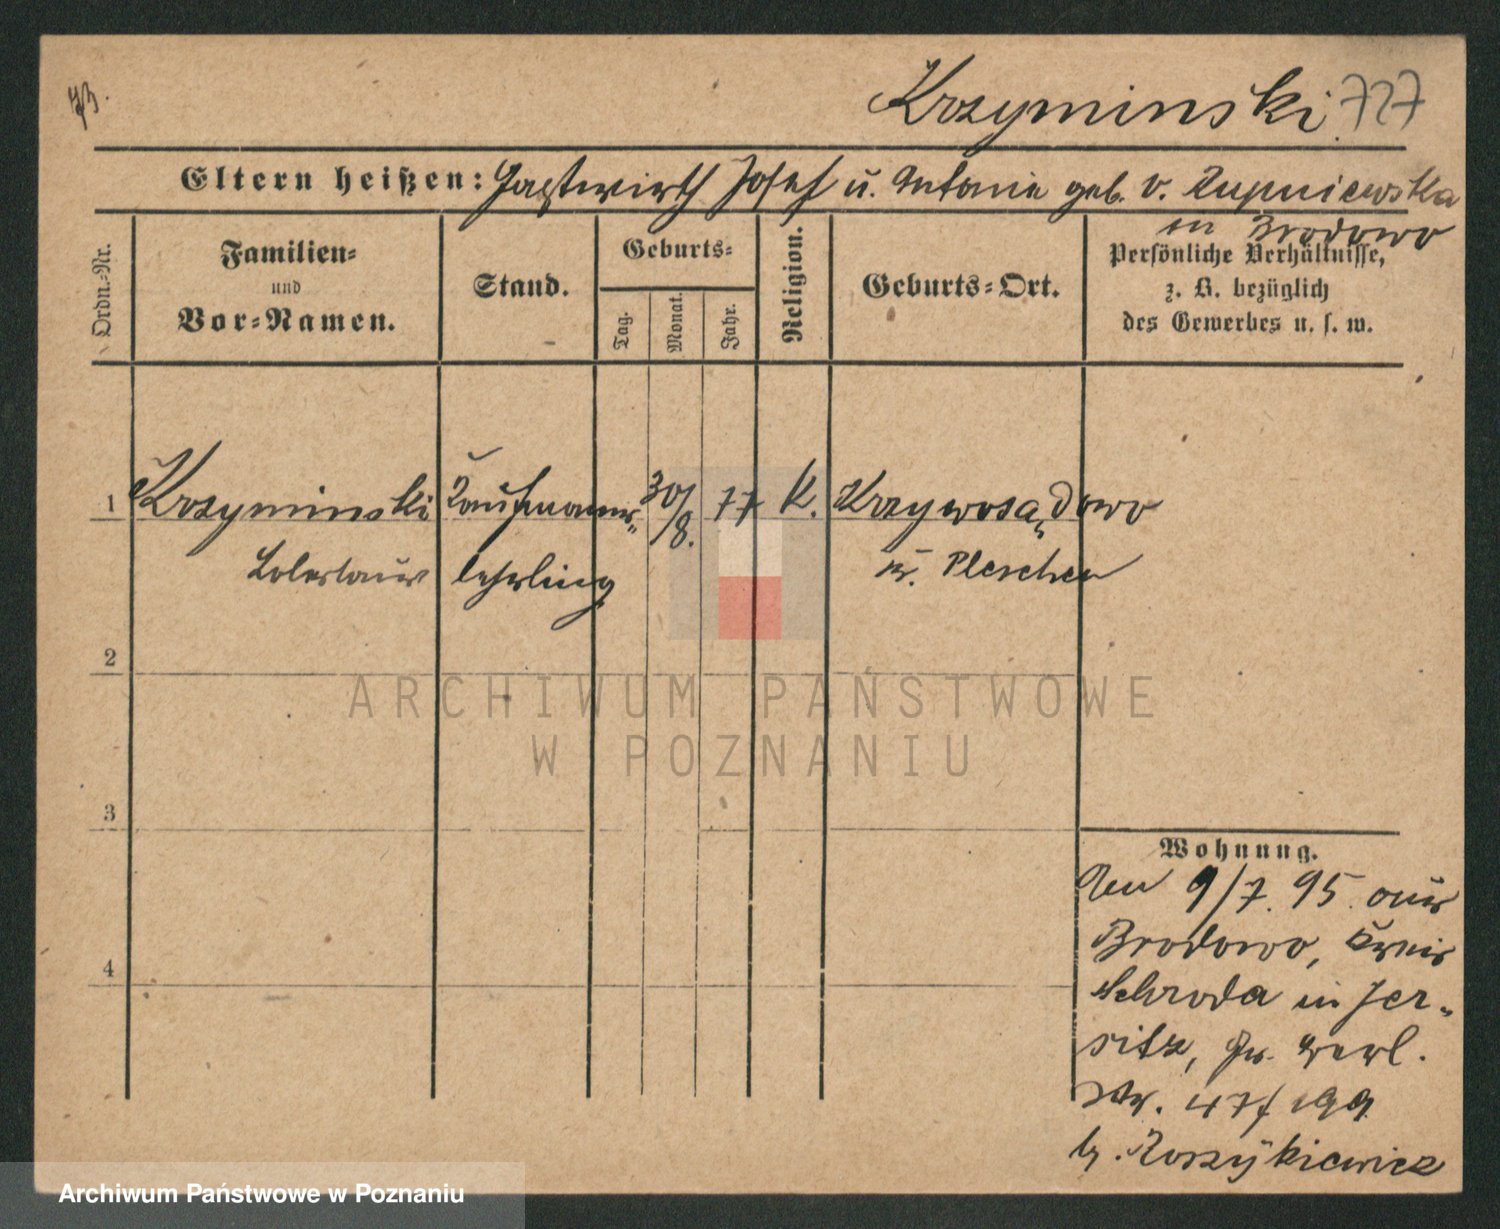 73.
Krzyminski 727
Eltern heißen: Gastwirth Josef u. Antonie geb. v. Zupniewska
in Brodowo
Ordn.-Nr.
Familien-
und
Vor-Namen.
Stand.
Geburts-
Tag.
Monat.
Jahr.
Religion.
Geburts-Ort.
Persönliche Verhältnisse,
z. B. bezüglich
des Gewerbes u. s. w.
1 Krzyminski Kaufmanns- 30/8. 77 K. Krzywosądowo
Boleslaus lehrling Kr. Pleschen
2
3
4
Wohnung.
Am 9/7. 95. aus
Brodowo, Kreis
Schroda in Jer-
sitz, Gr. Berl.
Str. 47/ 199
b. Koszykiewicz
ARCHIWUM PAŃSTWOWE
W POZNANIU
Archiwum Państwowe w Poznaniu